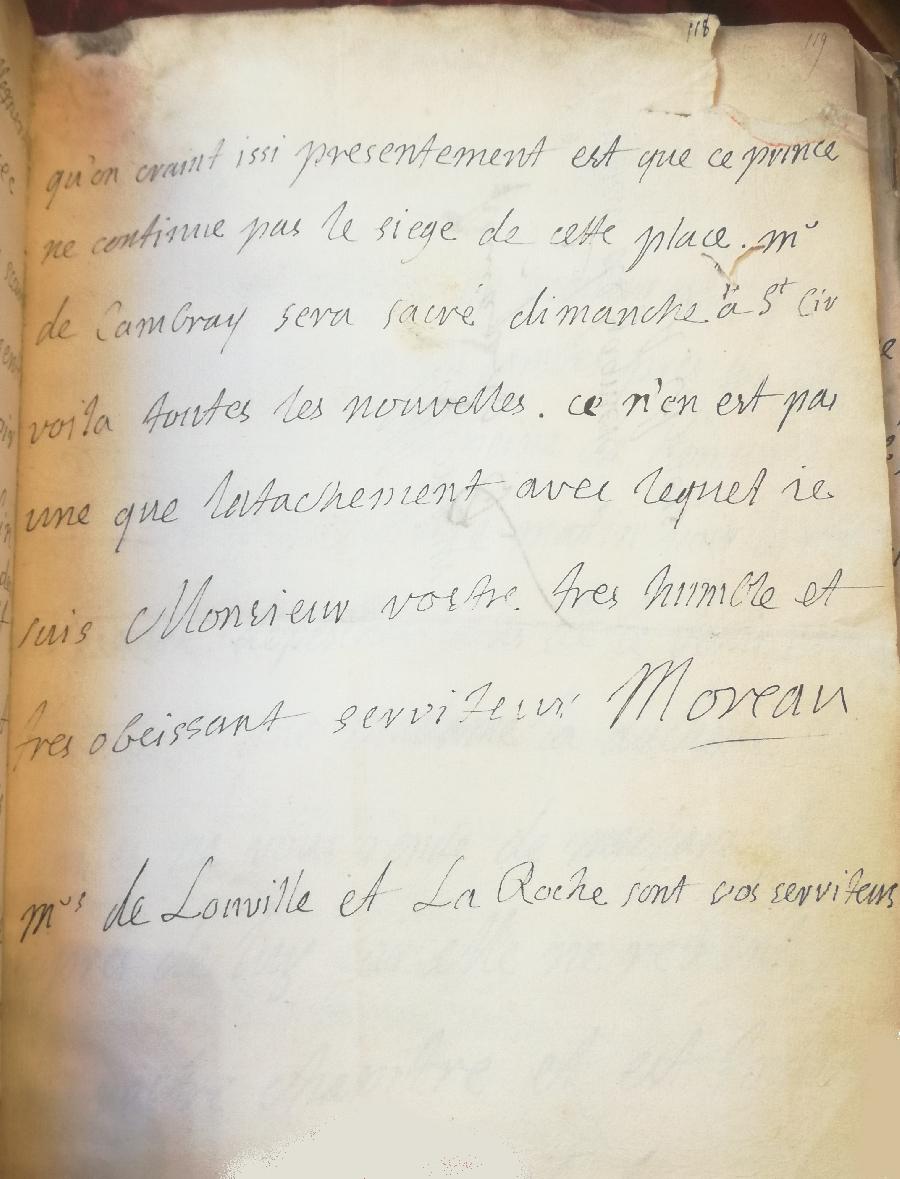 118
119
qu'on craint issi presentement est que ce prince
ne continue pas le siege de cette place. mr
de Cambray sera sacré dimanche a St Cir
voila toutes les nouvelles. ce n'en est pas
une que latachement avec lequel ie
suis Monsieur vostre tres humble et
tres obeissant serviteur Moreau
mrs de Louville et La Roche sont vos serviteurs